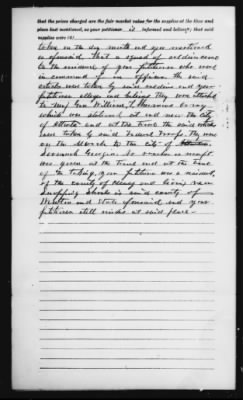 that the prices charged are the fair market value for the supplies at the time and
place last mentioned, as your petitioner is informed and believes; that said
supplies were (6)
taken on the day month and year mentioned
as aforesaid, that a squad of soldiers came
to the residence of your petitioner who were
in command of an officer the said
articles were taken by said soldiers and your
petitioner alleges and believes they were attached
to Maj Gen William T Sherman Army
which was stationed at and near the City
of Atlanta and at the time the said
were taken by said Federal Troops they were
on the March to the City of
Savannah Georgia. No voucher or receipt
was given at the time and at the time
of the taking, your petitioner was a resident
of the County of Henry and living near
in said County of
and State aforesaid and your
petitioner still resides at said place.